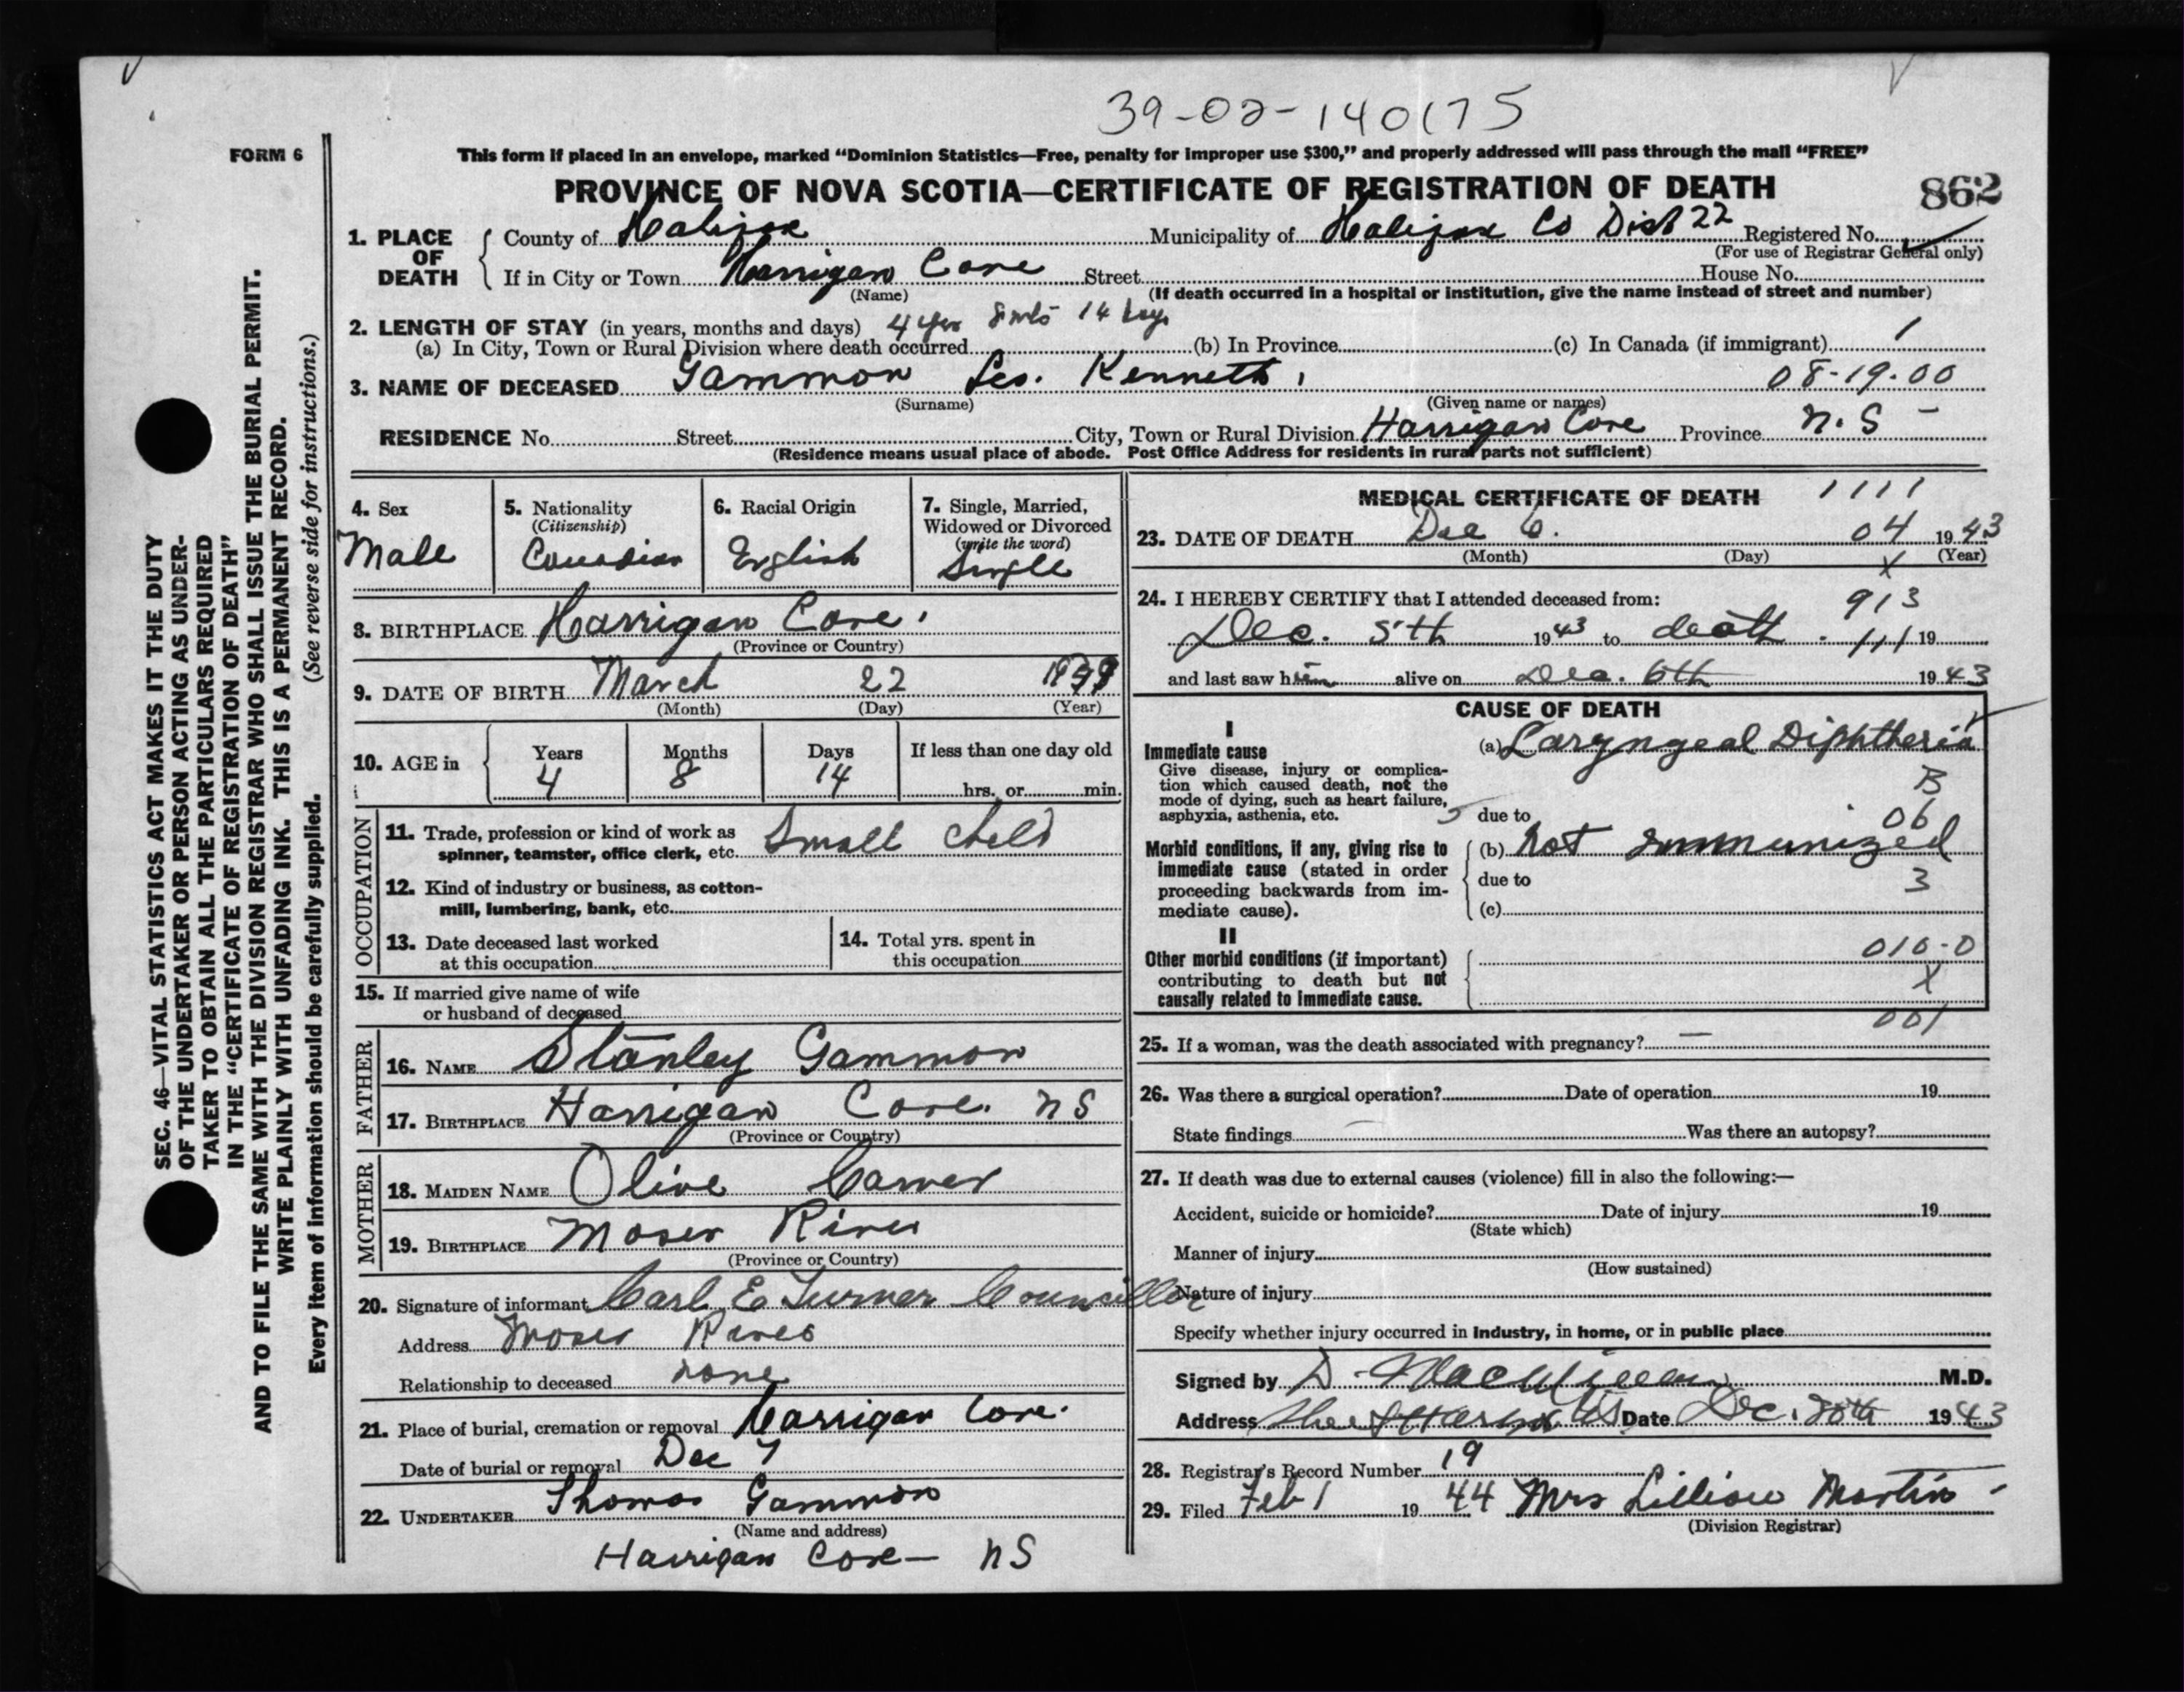 39-02-140175
FORM 6
This form if placed in an envelope, marked “Dominion Statistics—Free, penalty for improper use $300,” and properly addressed will pass through the mail “FREE”
PROVINCE OF NOVA SCOTIA—CERTIFICATE OF REGISTRATION OF DEATH
862
1. PLACE OF DEATH County of Halifax Municipality of Halifax Co Dist 22 Registered No.
(For use of Registrar General only)
If in City or Town Harrigan Cove Street House No.
(Name) (If death occurred in a hospital or institution, give the name instead of street and number)
2. LENGTH OF STAY (in years, months and days) 4 yrs 8 mts 14 days
(a) In City, Town or Rural Division where death occurred (b) In Province (c) In Canada (if immigrant) 1
3. NAME OF DECEASED Gammon Kenneth 08-19-00
(Surname) (Given name or names)
RESIDENCE No. Street City, Town or Rural Division Harrigan Cove Province N.S
(Residence means usual place of abode. Post Office Address for residents in rural parts not sufficient)
4. Sex
Male
5. Nationality
(Citizenship)
Canadian
6. Racial Origin
English
7. Single, Married,
Widowed or Divorced
(write the word)
Single
8. BIRTHPLACE Harrigan Cove
(Province or Country)
9. DATE OF BIRTH March 22
(Month) (Day) (Year)
10. AGE in Years Months Days If less than one day old
4 8 14 hrs. or min.
OCCUPATION
11. Trade, profession or kind of work as
spinner, teamster, office clerk, etc. Small child
12. Kind of industry or business, as cotton-
mill, lumbering, bank, etc.
13. Date deceased last worked
at this occupation
14. Total yrs. spent in
this occupation
15. If married give name of wife
or husband of deceased
FATHER
16. NAME Stanley Gammon
17. BIRTHPLACE Harrigan Cove. NS
(Province or Country)
MOTHER
18. MAIDEN NAME Olive
19. BIRTHPLACE Moser River
(Province or Country)
20. Signature of informant Carl E Turner Councillor
Address Moser River
Relationship to deceased none
21. Place of burial, cremation or removal Harrigan Cove.
Date of burial or removal Dec 7
22. UNDERTAKER Thomas Gammon
(Name and address)
Harrigan Cove— NS
MEDICAL CERTIFICATE OF DEATH 1111
23. DATE OF DEATH Dec 6. 04 1943
(Month) (Day) (Year)
X
24. I HEREBY CERTIFY that I attended deceased from:
913
Dec. 5th 1943 to death. 111 19
and last saw him alive on Dec. 6th 1943
CAUSE OF DEATH
I
Immediate cause (a) Laryngeal Diphtheria
Give disease, injury or complica-
tion which caused death, not the
mode of dying, such as heart failure,
asphyxia, asthenia, etc.
B
due to 06
Morbid conditions, if any, giving rise to
immediate cause (stated in order
proceeding backwards from im-
mediate cause).
(b) Not immunized
due to 3
(c)
II
Other morbid conditions (if important)
contributing to death but not
causally related to immediate cause.
010-0
X
001
25. If a woman, was the death associated with pregnancy? —
26. Was there a surgical operation? Date of operation 19
State findings Was there an autopsy?
27. If death was due to external causes (violence) fill in also the following:—
Accident, suicide or homicide? Date of injury 19
(State which)
Manner of injury
(How sustained)
Nature of injury
Specify whether injury occurred in industry, in home, or in public place
Signed by D. MacMillan M.D.
Address Sheet Harbour NS Date Dec. 1943
28. Registrar's Record Number 19
29. Filed Feb 1 1944 Mrs Lillian Martin
(Division Registrar)
SEC. 46—VITAL STATISTICS ACT MAKES IT THE DUTY
OF THE UNDERTAKER OR PERSON ACTING AS UNDER-
TAKER TO OBTAIN ALL THE PARTICULARS REQUIRED
IN THE “CERTIFICATE OF REGISTRATION OF DEATH”
AND TO FILE THE SAME WITH THE DIVISION REGISTRAR WHO SHALL ISSUE THE BURIAL PERMIT.
WRITE PLAINLY WITH UNFADING INK. THIS IS A PERMANENT RECORD.
Every item of information should be carefully supplied. (See reverse side for instructions.)